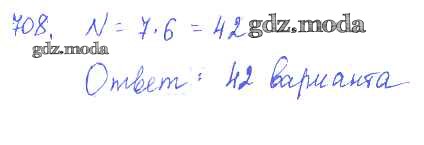 708. N = 7·6 = 42 gdz.moda
gdz.moda
Ответ: 42 варианта